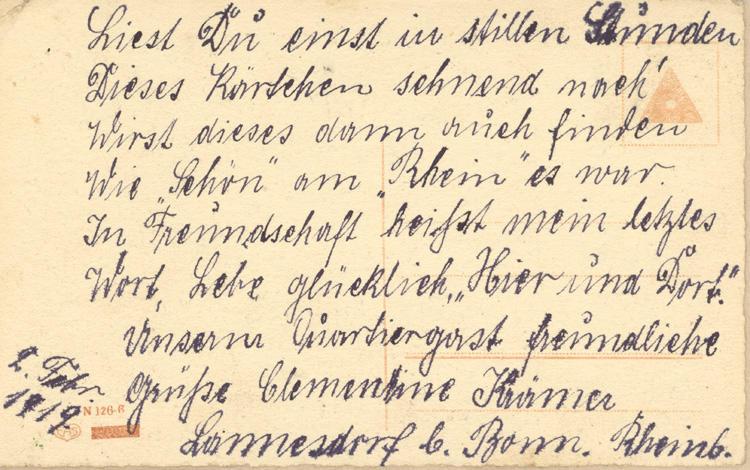 Liest Du einst in stillen Stunden
Dieses Kärtchen sehnend nach
Wirst dieses dann auch finden
Wie „Schön" am „Rhein" es war.
In Freundschaft heißt mein letztes
Wort, Lebe glücklich, „Hier und Dort."
Unserm Quartiergast freundliche
Grüße Clementine Krämer
Lannesdorf b. Bonn. Rheinb.
2. Febr.
1919.
N 126-6